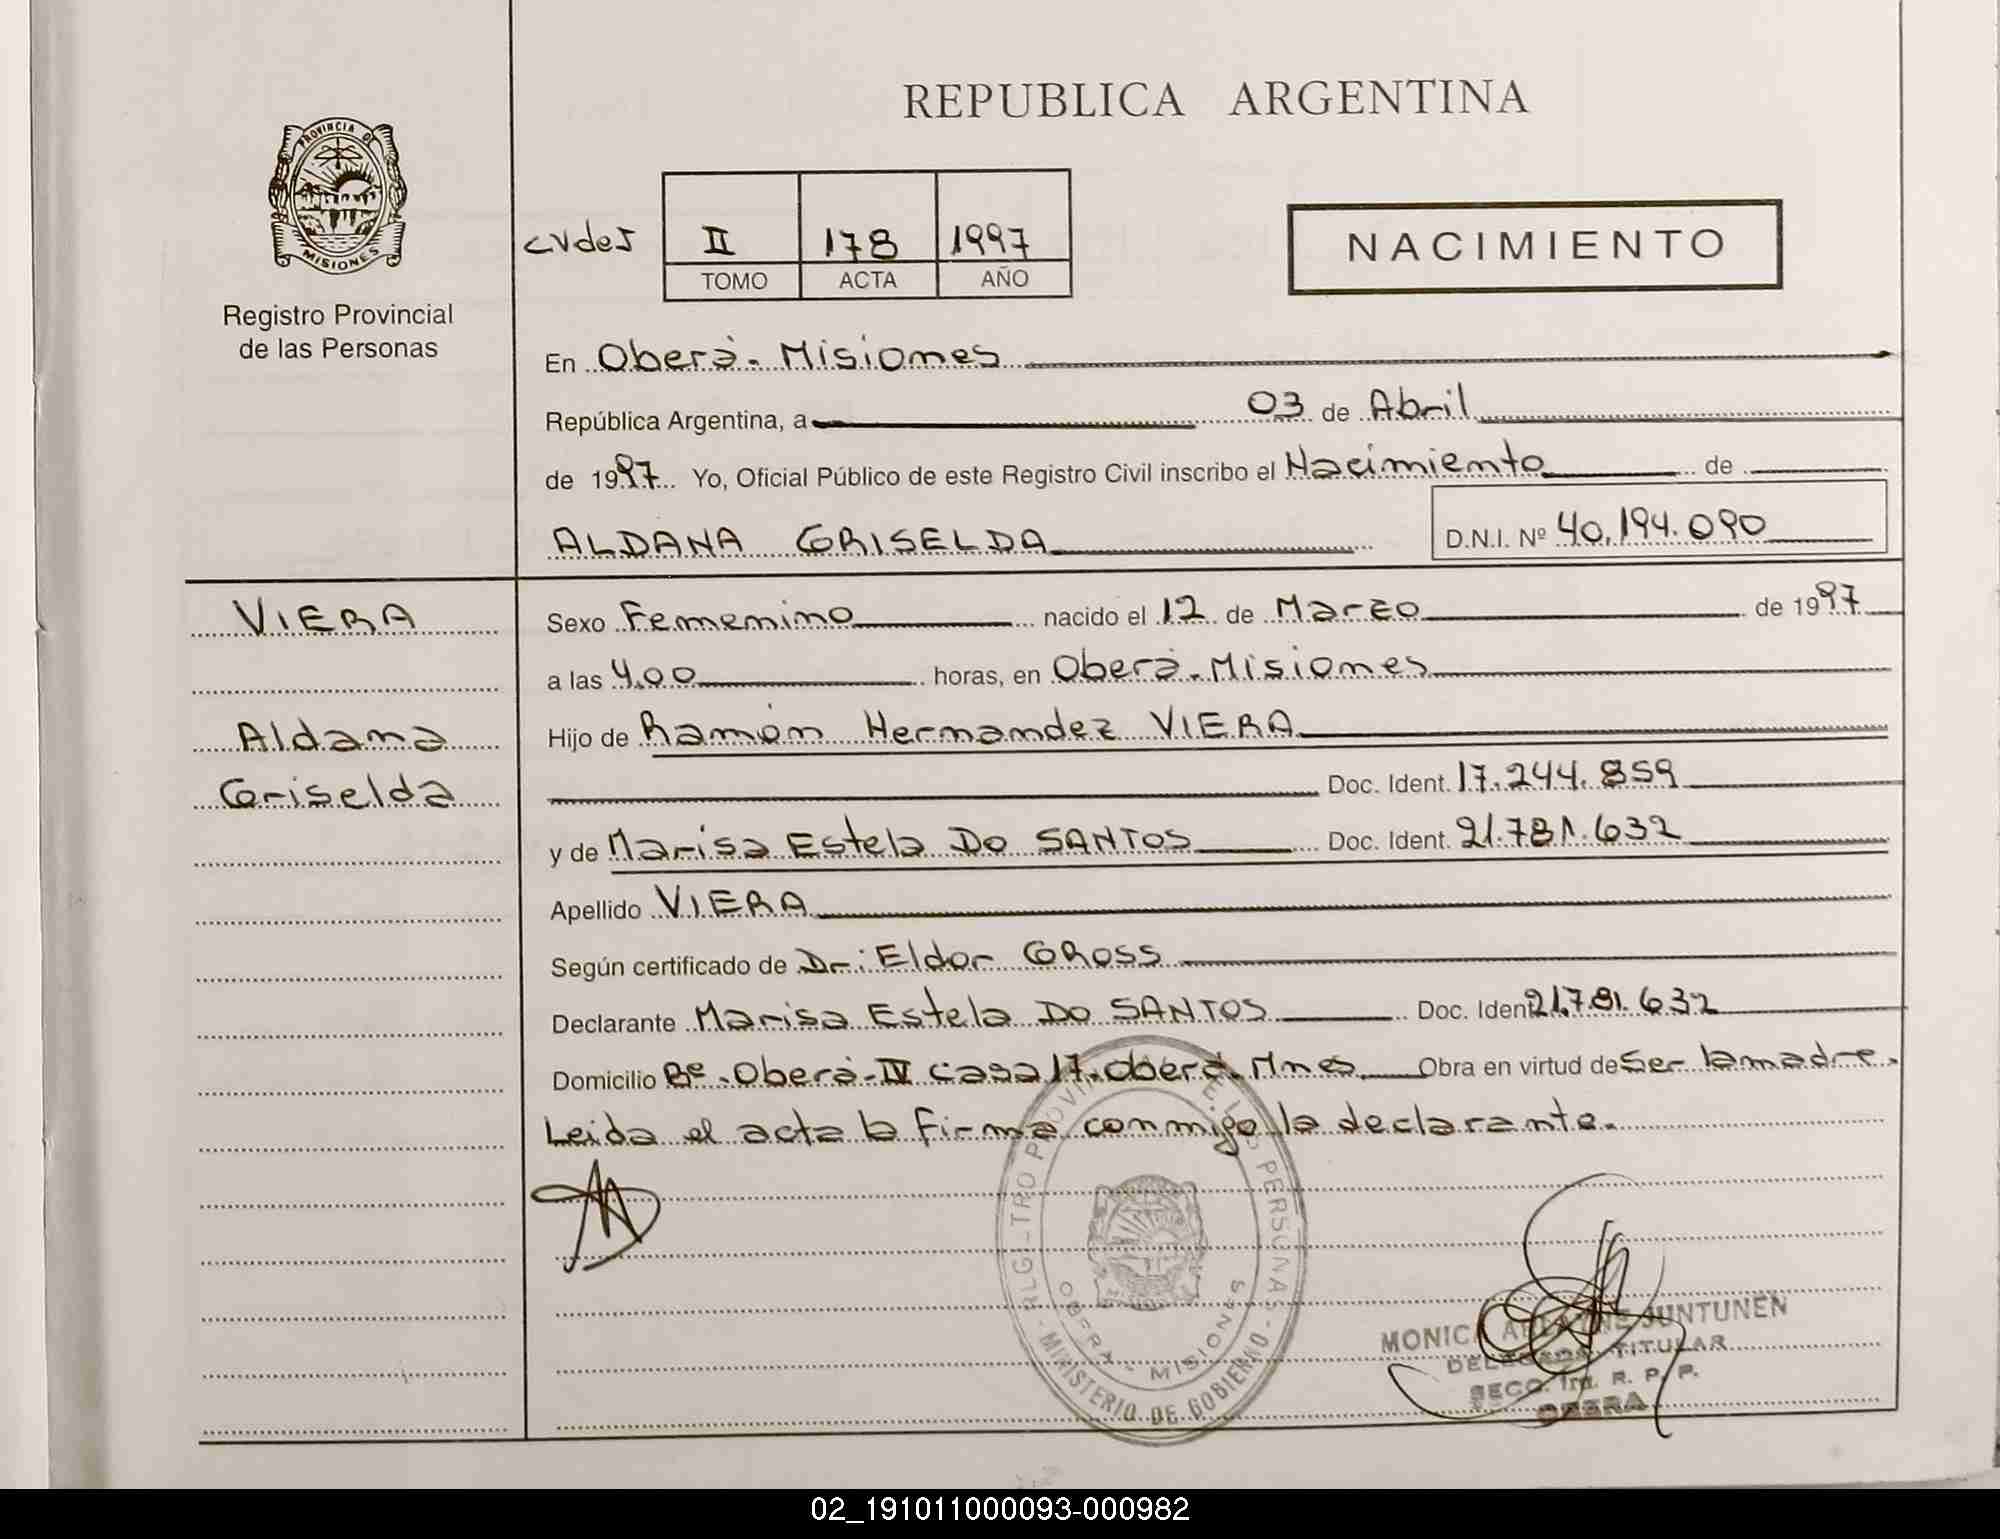 REPUBLICA ARGENTINA
PROVINCIA DE
MISIONES
Registro Provincial
de las Personas
II 178 1997
TOMO ACTA AÑO
NACIMIENTO
En Oberá. Misiones
República Argentina, a 03 de Abril
de 1997 Yo, Oficial Público de este Registro Civil inscribo el Nacimiento de
ALDANA GRISELDA D.N.I. Nº 40.194.090
VIERA
Aldana
Griselda
Sexo Femenino nacido el 12 de Marzo de 1997
a las 4,00 horas, en Oberá. Misiones
Hijo de Ramón Hernandez VIERA
Doc. Ident. 17.244.859
y de Marisa Estela Do SANTOS Doc. Ident. 21.781.632
Apellido VIERA
Según certificado de Dr: Eldor GROSS
Declarante Marisa Estela Do SANTOS Doc. Ident 21.781.632
Domicilio Bº. Oberá-IV casa 17. Oberá. Mnes. Obra en virtud de Ser la madre.
Leida el acta la firma conmigo la declarante.
REGISTRO PROVINCIAL DE LAS PERSONAS
OBERA - MISIONES
- MINISTERIO DE GOBIERNO -
MONICA JUNTUNEN
DELEGADA TITULAR
SECC. 1ra. R. P. P.
OBERA
02_191011000093-000982